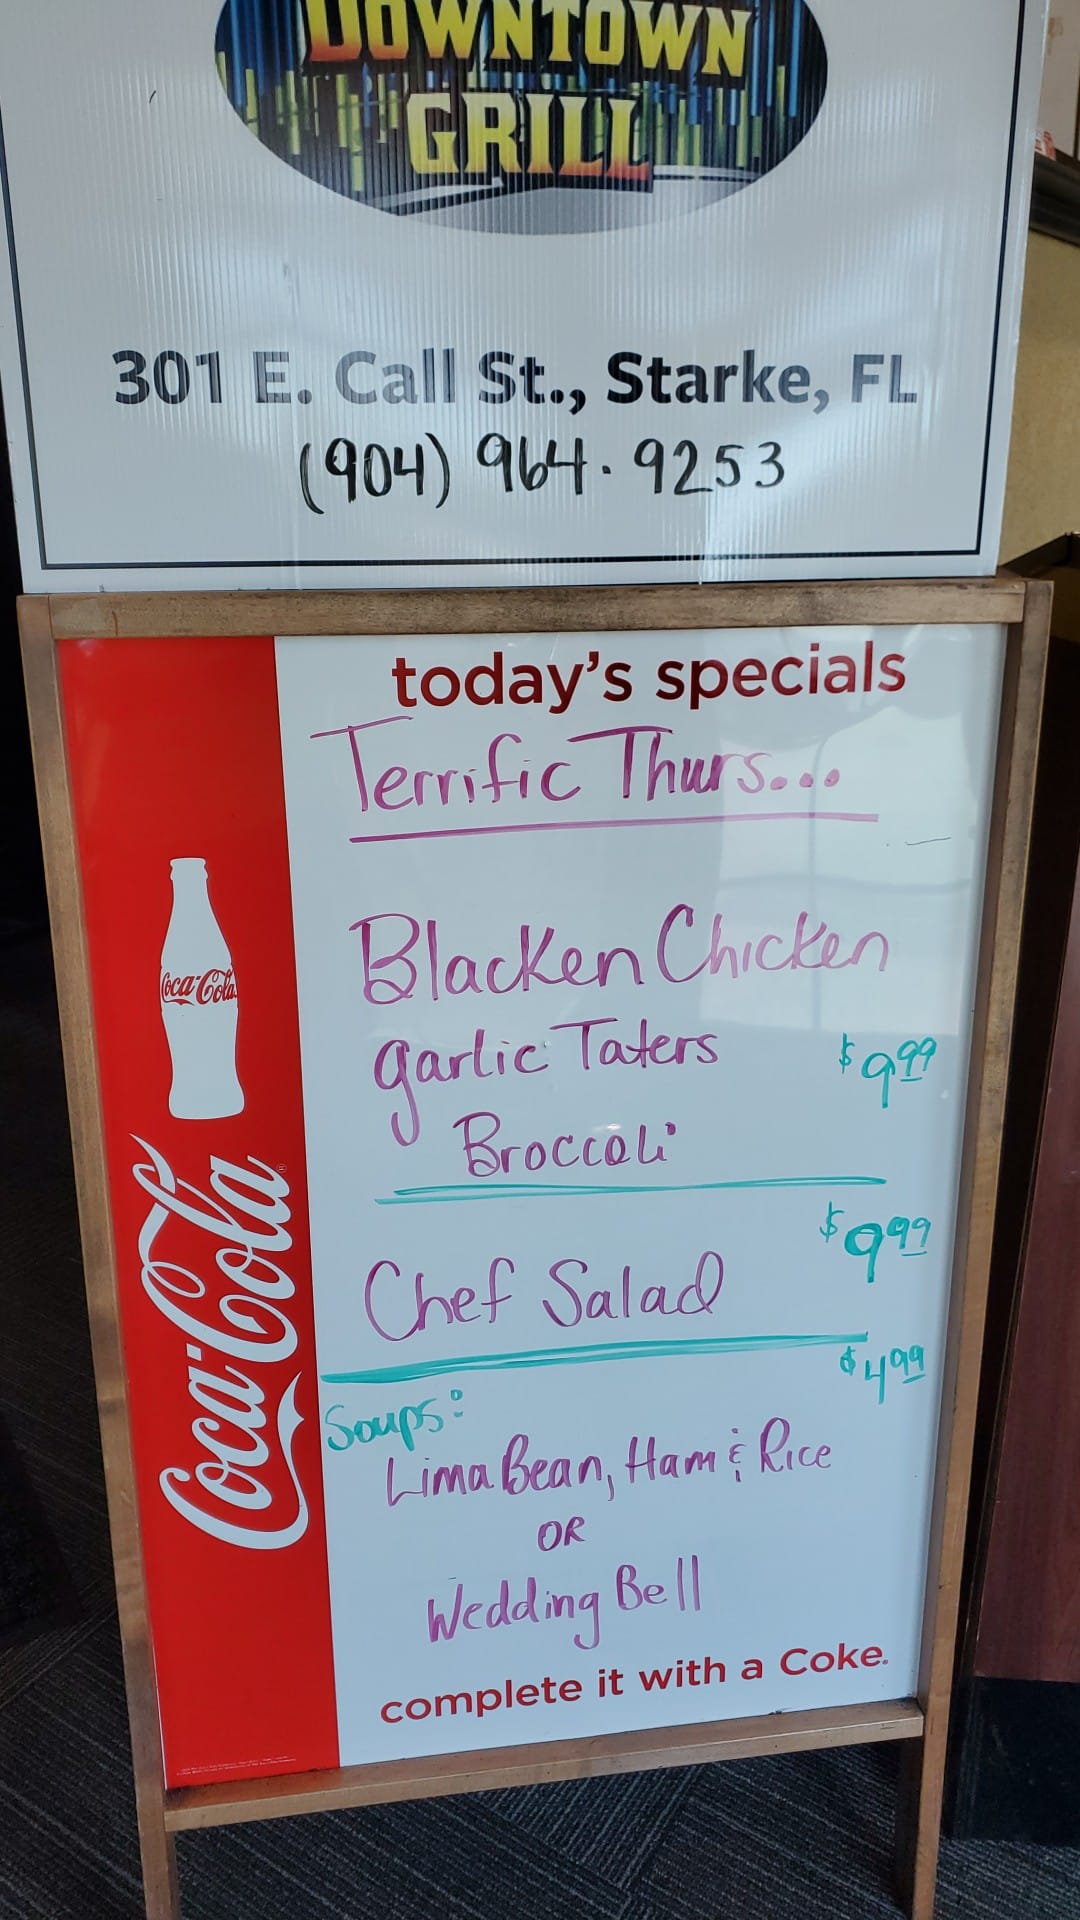 DOWNTOWN
GRILL
301 E. Call St., Starke, FL
(904) 964.9253
today's specials
Terrific Thurs...
Blacken Chicken
garlic Taters $9.99
Broccoli
$9.99
Chef Salad
$4.99
Soups:
Lima Bean, Ham & Rice
OR
Wedding Bell
complete it with a Coke.
Coca-Cola
Coca-Cola®